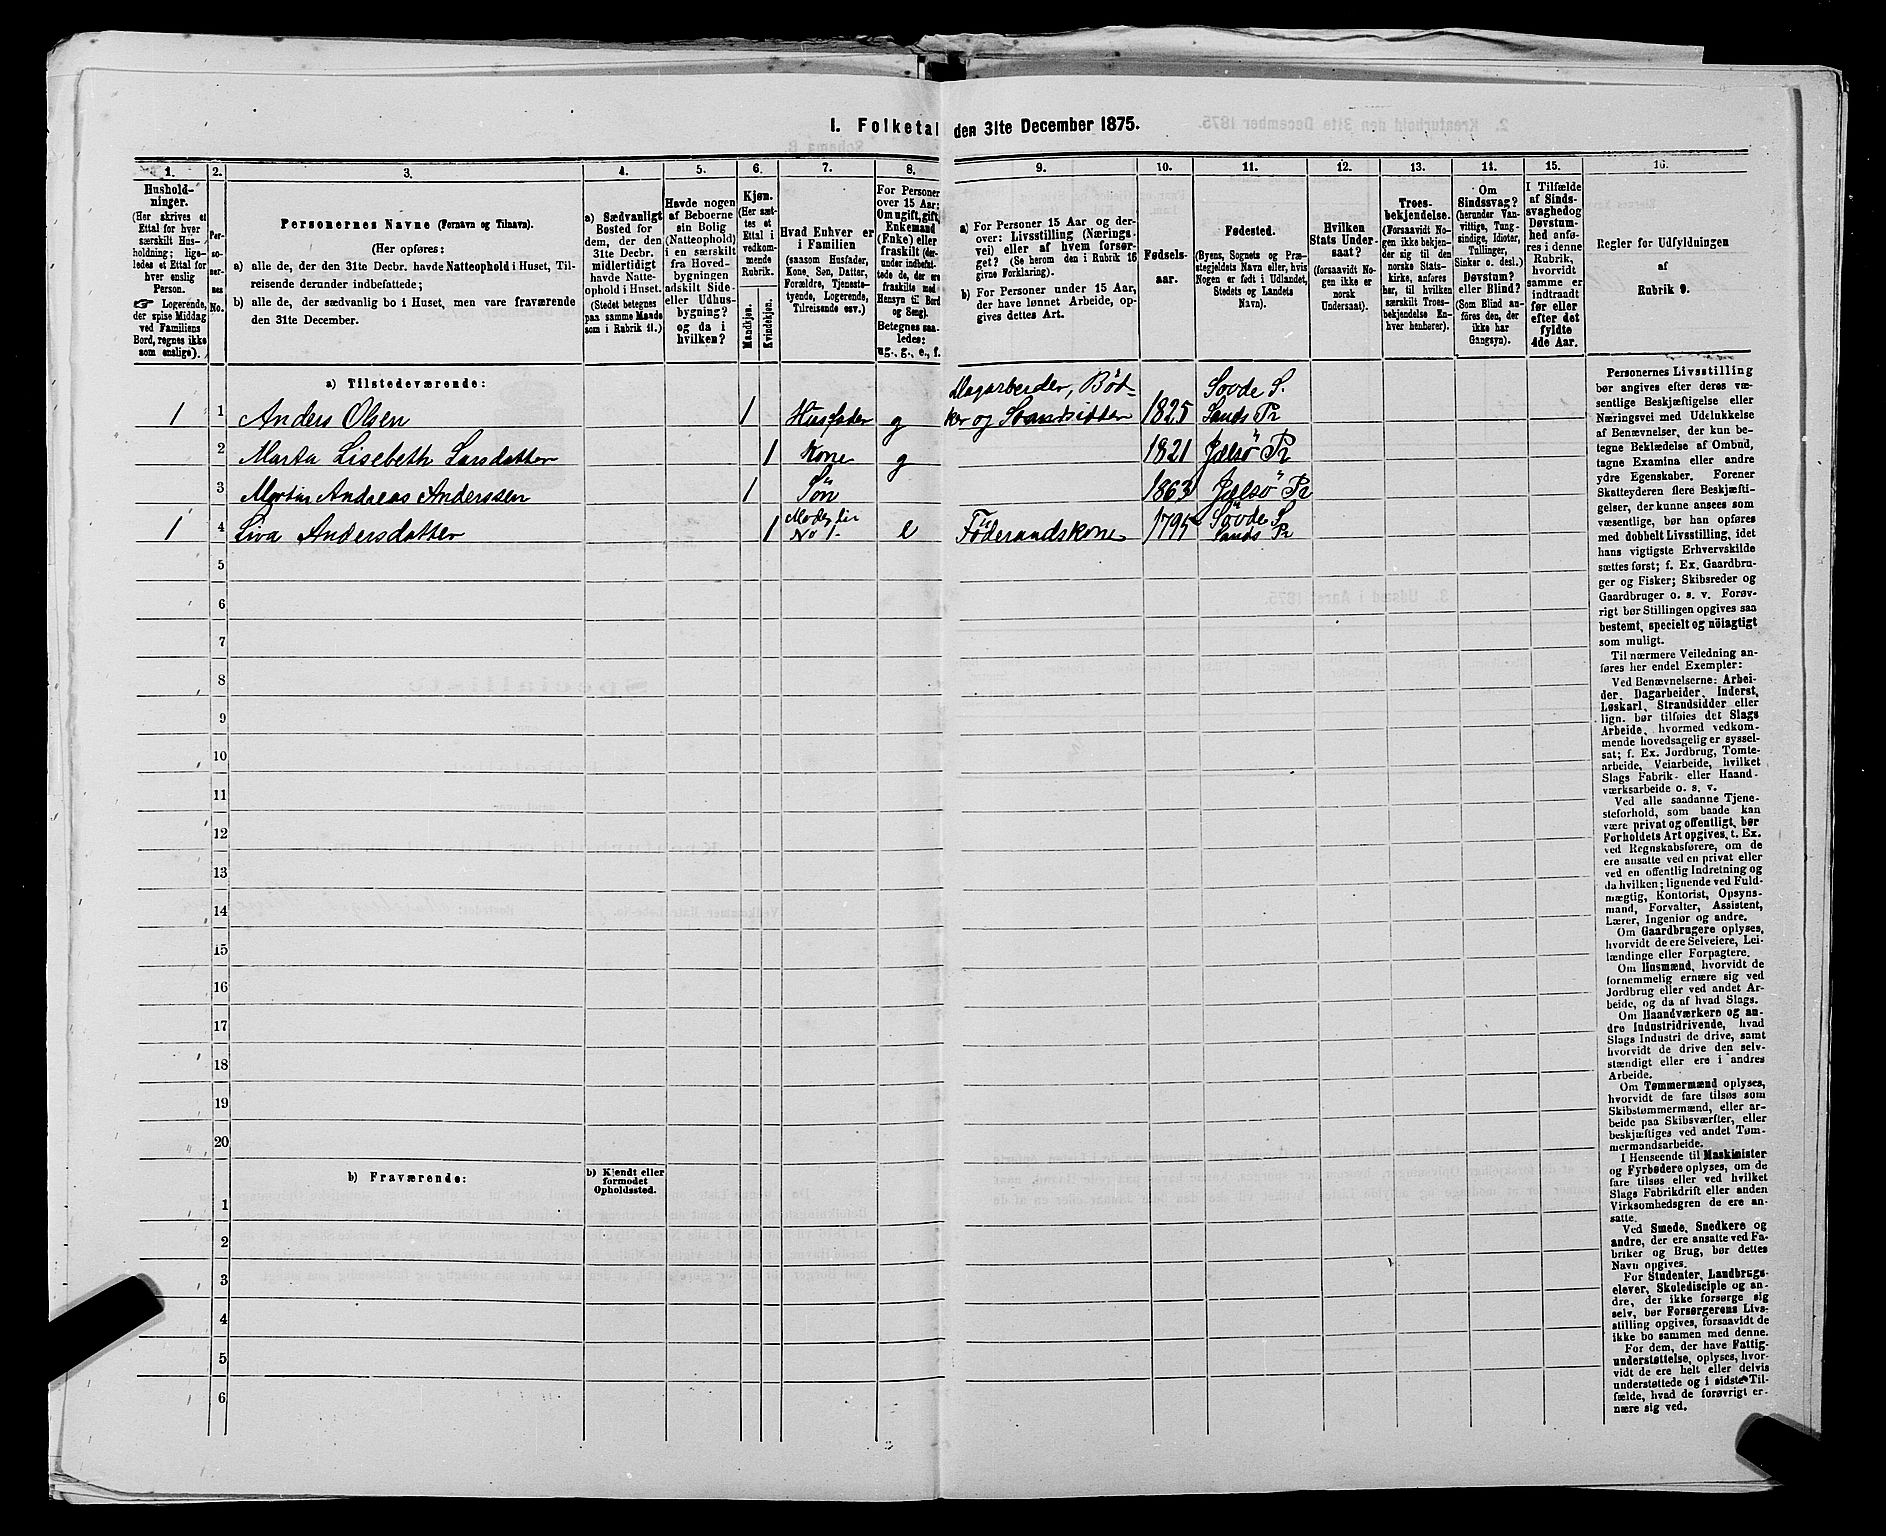 I. Folketal den 31te December 1875.
1. 2. 3. 4. 5. 6. 7. 8. 9. 10. 11. 12. 13. 14. 15. 16.
Hushold-
ninger.
(Her skrives et
Ettal for hver
særskilt Hus-
holdning; lige-
ledes et Ettal for
hver enslig
Person.
☞ Logerende,
der spise Middag
ved Familiens
Bord, regnes ikke
som enslige).
Per-
so-
ner-
nes
No.
Personernes Navne (Fornavn og Tilnavn).
(Her opføres:
a) alle de, der den 31te Decbr. havde Natteophold i Huset, Til-
reisende derunder indbefattede;
b) alle de, der sædvanlig bo i Huset, men vare fraværende
den 31te December.
a) Sædvanligt
Bosted for
dem, der den
31te Decbr.
midlertidigt
havde Natte-
ophold i Huset.
(Stedet betegnes
paa samme Maade
som i Rubrik 11.)
Havde nogen
af Beboerne
sin Bolig
(Natteophold)
i en særskilt
fra Hoved-
bygningen
adskilt Side-
eller Udhus-
bygning?
og da i
hvilken?
Kjøn.
(Her sæt-
tes et
Ettal i
vedkom-
mende
Rubrik.
Mandkjøn.
Kvindekjøn.
Hvad Enhver er
i Familien
(saasom Husfader,
Kone, Søn, Datter,
Forældre, Tjeneste-
tyende, Logerende,
Tilreisende osv.)
For Personer
over 15 Aar:
Om ugift, gift,
Enkemand
(Enke) eller
fraskilt (der-
under indbefat-
tede de, der ere
fraskilte med
Hensyn til Bord
og Seng).
Betegnes saa-
ledes:
ug., g., e., f.
a) For Personer 15 Aar og der-
over: Livsstilling (Nærings-
vei) eller af hvem forsør-
get? (Se herom den i Rubrik 16
givne Forklaring).
b) For Personer under 15 Aar,
der have lønnet Arbeide, op-
gives dettes Art.
Fødsels-
aar.
Fødested.
(Byens, Sognets og Præ-
stegjeldets Navn eller, hvis
Nogen er født i Udlandet,
Stedets og Landets
Navn).
Hvilken
Stats Under-
saat?
(forsaavidt No-
gen ikke er
norsk
Undersaat).
Troes-
bekjendelse.
(Forsaavidt No-
gen ikke bekjen-
der sig til den
norske Stats-
kirke, anføres
her, til hvilken
særskilt Troes-
bekjendelse En-
hver henhører).
Om
Sindssvag?
(herunder Van-
vittige, Tung-
sindige, Idioter,
Tullinger,
Sinker o. desl.)
Døvstum?
eller Blind?
(Som Blind an-
føres den, der
ikke har
Gangsyn).
I Tilfælde
af Sinds-
svaghed og
Døvstum-
hed anfø-
res i denne
Rubrik,
hvorvidt
samme er
indtraadt
før eller
efter det
fyldte
4de Aar.
Regler for Udfyldningen
af
Rubrik 9.
a) Tilstedeværende:
1 1 Anders Olsen 1 Husfader g Dagarbeider, Bød-
ker og Strandsidder 1825 Sovde S.
Sands Pr
2 Marta Lisebeth Larsdatter 1 Kone g 1821 Jælsö Pr
3 Martin Andreas Anderssen 1 Sön 1863 Jælsö Pr
1 4 Siva Andersdatter 1 Moder til
No 1. e Föderaadskone 1795 Sövde S
Sands Pr
5
6
7
8
9
10
11
12
13
14
15
16
17
18
19
20
b) Fraværende:
b) Kjendt eller
formodet
Opholdssted.
1
2
3
4
5
6
Personernes Livsstilling
bør angives efter deres væ-
sentlige Beskjæftigelse eller
Næringsvei med Udelukkelse
af Benævnelser, der kun be-
tegne Beklædelse af Ombud,
tagne Examina eller andre
ydre Egenskaber. Forener
Skatteyderen flere Beskjæfti-
gelser, der kunne ansees som
væsentlige, bør han opføres
med dobbelt Livsstilling, idet
hans vigtigste Erhvervskilde
sættes først; f. Ex. Gaardbru-
ger og Fisker; Skibsreder og
Gaardbruger o. s. v. Forøv-
rigt bør Stillingen opgives saa
bestemt, specielt og nöiagtigt
som muligt.
Til nærmere Veiledning an-
føres her endel Exempler:
Ved Benævnelserne: Arbei-
der, Dagarbeider, Inderst,
Løskarl, Strandsidder eller
lign. bør tilføies det Slags
Arbeide, hvormed vedkom-
mende hovedsagelig er syssel-
sat; f. Ex. Jordbrug, Tomte-
arbeide, Veiarbeide, hvilket
Slags Fabrik- eller Haand-
værksarbeide o. s. v.
Ved alle saadanne Tjene-
steforhold, som baade kan
være privat og offentligt, bør
Forholdets Art opgives, t. Ex.
ved Regnskabsførere, om de
ere ansatte ved en privat eller
ved en offentlig Indretning og
da hvilken; lignende ved Fuld-
mægtig, Kontorist, Opsyns-
mand, Forvalter, Assistent,
Lærer, Ingeniør og andre.
Om Gaardbrugere oplyses,
hvorvidt de ere Selveiere, Lei-
lændinge eller Forpagtere.
Om Husmænd, hvorvidt de
fornemmelig ernære sig ved
Jordbrug eller ved andet Ar-
beide, og da af hvad Slags.
Om Haandværkere og an-
dre Industridrivende, hvad
Slags Industri de drive, samt
hvorvidt de drive den selv-
stændigt eller ere i andres
Arbeide.
Om Tømmermænd oplyses,
hvorvidt de fare tilsøs som
Skibstømmermænd, eller ar-
beide paa Skibsværfter, eller
beskjæftiges ved andet Tøm-
mermandsarbeide.
I Henseende til Maskinister
og Fyrbødere oplyses, om de
fare tilsøs eller ved hvilket
Slags Fabrikdrift eller anden
Virksomhedsgren de ere an-
satte.
Ved Smede, Snedkere og
andre, der ere ansatte ved Fa-
briker og Brug, bør dettes
Navn opgives.
For Studenter, Landbrugs-
elever, Skoledisciple og an-
dre, der ikke forsørge sig
selv, bør Forsørgerens Livs-
stilling opgives, forsaavidt de
ikke bo sammen med denne.
For dem, der have Fattig-
understøttelse, oplyses, hvor-
vidt de ere helt eller delvis
understøttede og i sidste Til-
fælde, hvad de forøvrigt er-
nære sig ved.